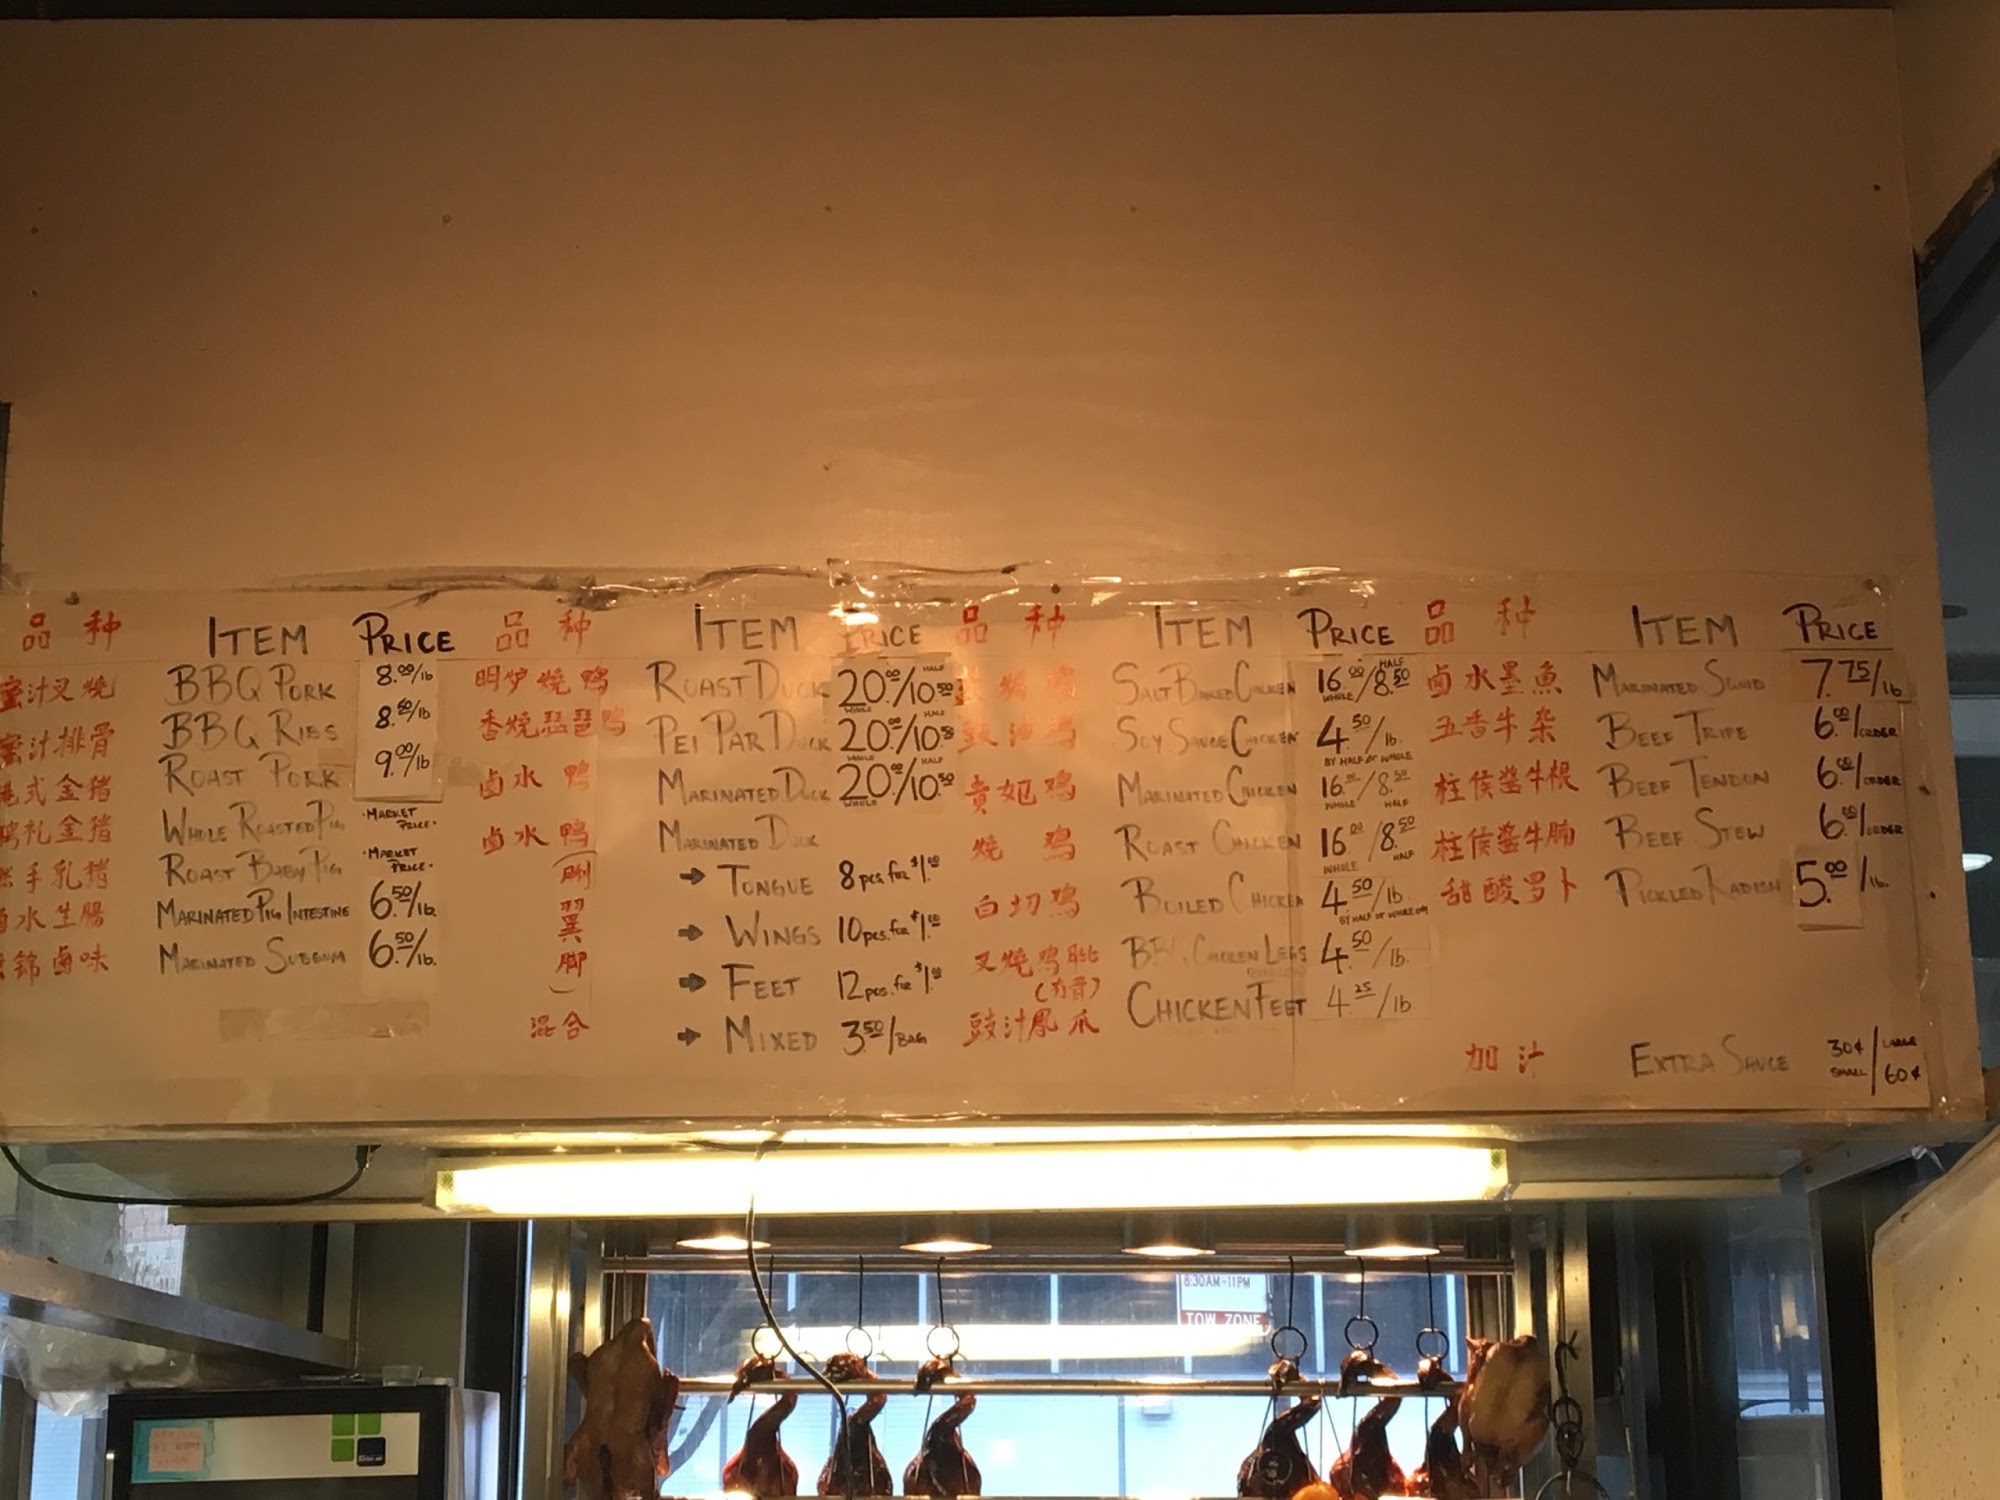 品种 ITEM PRICE
蜜汁叉烧 BBQ PORK 8.00/lb
蜜汁排骨 BBQ RIBS 8.50/lb
式金猪 ROAST PORK 9.00/lb
礼金猪 WHOLE ROASTED PIG ·MARKET PRICE·
手乳猪 ROAST BABY PIG ·MARKET PRICE·
水生腸 MARINATED PIG INTESTINE 6.50/lb.
锦卤味 MARINATED SUBGUM 6.50/lb.
品种 ITEM PRICE
明炉烧鸭 ROAST DUCK 20.00/10.50 WHOLE HALF
香烧琵琶鸭 PEI PAR DUCK 20.00/10.50 WHOLE HALF
卤水鸭 MARINATED DUCK 20.00/10.50 WHOLE HALF
卤水鸭 MARINATED DUCK
→ TONGUE 8 pcs. for $1.00
翼 → WINGS 10 pcs. for $1.00
脚 → FEET 12 pcs. for $1.00
混合 → MIXED 3.50/BAG
品种 ITEM PRICE
鸡 SALT BAKED CHICKEN 16.00/8.50 WHOLE HALF
豉油鸡 SOY SAUCE CHICKEN 4.50/lb. BY HALF OR WHOLE
貴妃鸡 MARINATED CHICKEN 16.00/8.50 WHOLE HALF
烧鸡 ROAST CHICKEN 16.00/8.50 WHOLE HALF
白切鸡 BOILED CHICKEN 4.50/lb. BY HALF OR WHOLE ONLY
叉烧鸡 BBQ CHICKEN LEGS 4.50/lb.
豉汁鳳爪 CHICKEN FEET 4.25/lb
品种 ITEM PRICE
卤水墨魚 MARINATED SQUID 7.75/lb
五香牛杂 BEEF TRIPE 6.00/ORDER
柱侯酱牛根 BEEF TENDON 6.00/ORDER
柱侯酱牛腩 BEEF STEW 6.00/ORDER
甜酸罗卜 PICKLED RADISH 5.00/lb.
加汁 EXTRA SAUCE 30¢ SMALL / LARGE 60¢
8:30AM-11PM
TOW ZONE